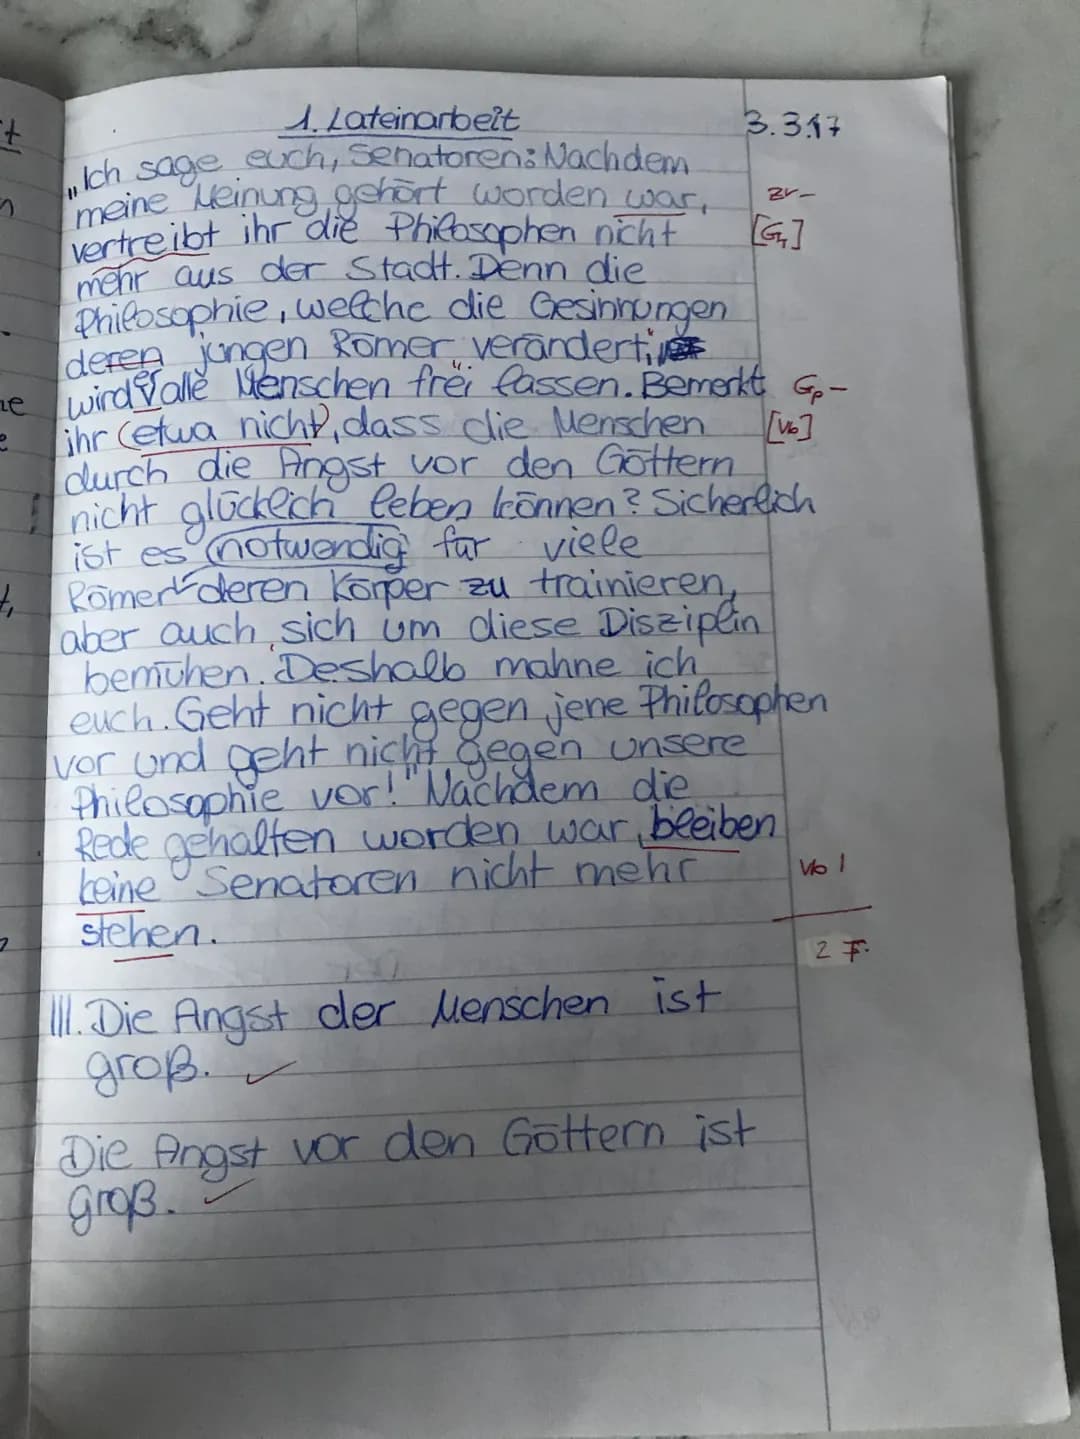 1. Lateinarbeit 3.3.17
"Ich sage euch, Senatoren: Nachdem
meine Meinung gehört worden war, zv-
vertreibt ihr die Philosophen nicht [Gr]
mehr aus der Stadt. Denn die
Philosophie, welche die Gesinnungen
deren jungen Römer "verändert",
wird alle Menschen frei lassen. Bemerkt Gp-
ihr (etwa nicht), dass die Menschen [Vb]
durch die Angst vor den Göttern
nicht glücklich leben können? Sicherlich
ist es notwendig für viele
Römer deren Körper zu trainieren,
aber auch sich um diese Disziplin
bemühen. Deshalb mahne ich
euch. Geht nicht gegen jene Philosophen
vor und geht nicht gegen unsere
Philosophie vor!" Nachdem die
Rede gehalten worden war, bleiben
keine Senatoren nicht mehr Vb!
stehen.
2 F.
III. Die Angst der Menschen ist
groß. ✓
Die Angst vor den Göttern ist
groß. ✓